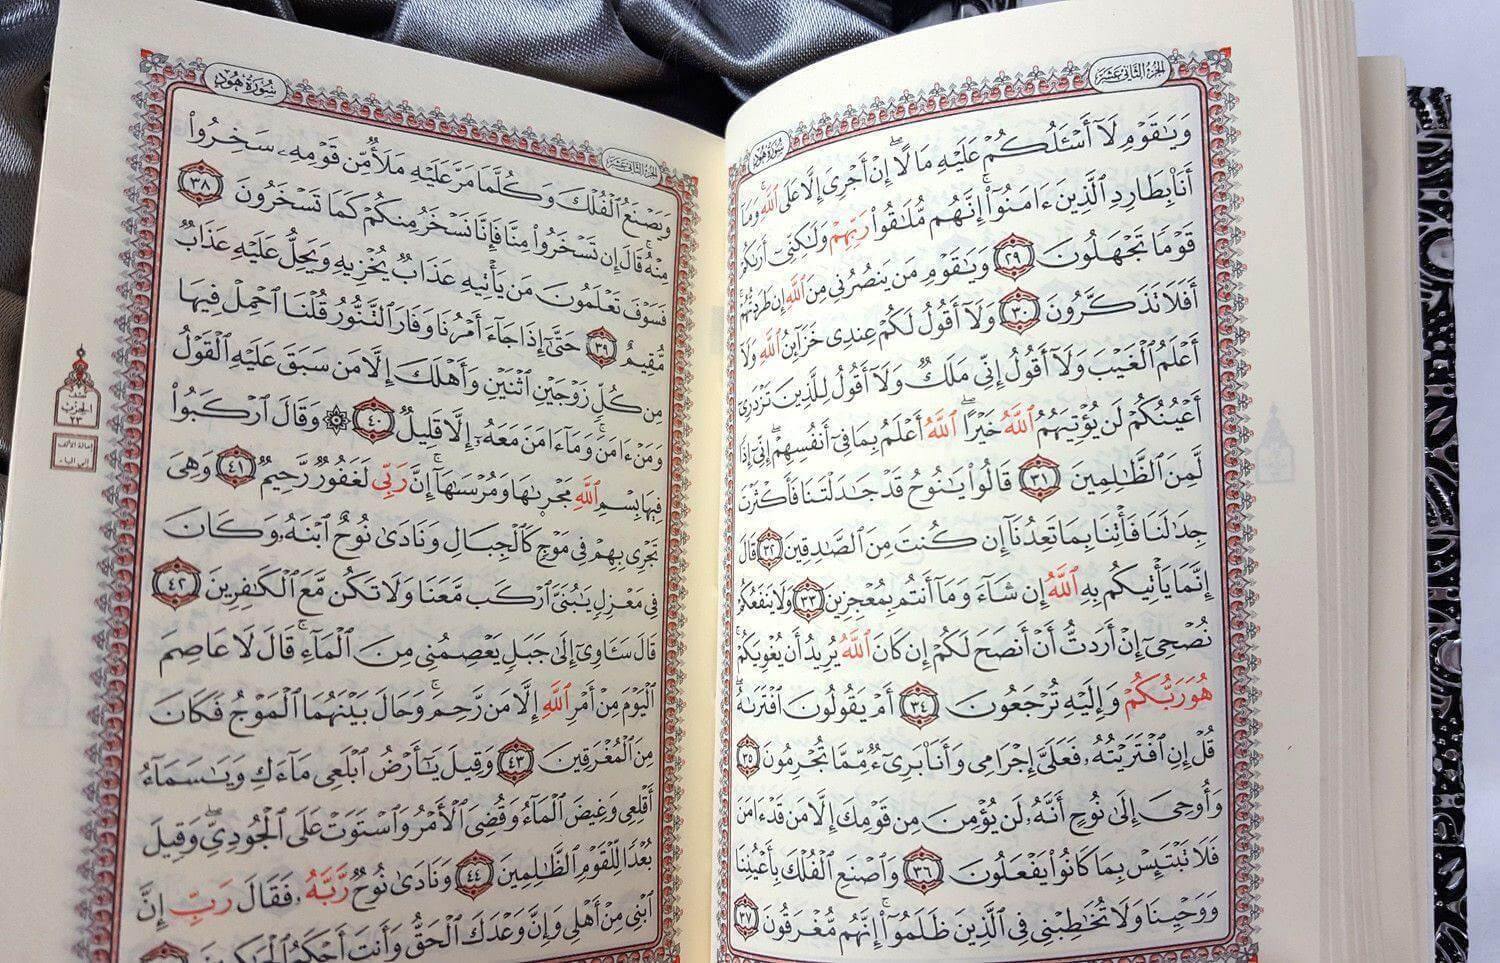 الجزء الثاني عشر
سورة هود
وَيَٰقَوْمِ لَآ أَسْـَٔلُكُمْ عَلَيْهِ مَالًا ۖ إِنْ أَجْرِىَ إِلَّا عَلَى ٱللَّهِ ۚ وَمَآ
أَنَا۠ بِطَارِدِ ٱلَّذِينَ ءَامَنُوٓا۟ ۚ إِنَّهُم مُّلَٰقُوا۟ رَبِّهِمْ وَلَٰكِنِّىٓ أَرَىٰكُمْ
قَوْمًا تَجْهَلُونَ ٢٩ وَيَٰقَوْمِ مَن يَنصُرُنِى مِنَ ٱللَّهِ إِن طَرَدتُّهُمْ ۚ
أَفَلَا تَذَكَّرُونَ ٣٠ وَلَآ أَقُولُ لَكُمْ عِندِى خَزَآئِنُ ٱللَّهِ وَلَآ
أَعْلَمُ ٱلْغَيْبَ وَلَآ أَقُولُ إِنِّى مَلَكٌ وَلَآ أَقُولُ لِلَّذِينَ تَزْدَرِىٓ
أَعْيُنُكُمْ لَن يُؤْتِيَهُمُ ٱللَّهُ خَيْرًا ۖ ٱللَّهُ أَعْلَمُ بِمَا فِىٓ أَنفُسِهِمْ ۖ إِنِّىٓ إِذًا
لَّمِنَ ٱلظَّٰلِمِينَ ٣١ قَالُوا۟ يَٰنُوحُ قَدْ جَٰدَلْتَنَا فَأَكْثَرْتَ
جِدَٰلَنَا فَأْتِنَا بِمَا تَعِدُنَآ إِن كُنتَ مِنَ ٱلصَّٰدِقِينَ ٣٢ قَالَ
إِنَّمَا يَأْتِيكُم بِهِ ٱللَّهُ إِن شَآءَ وَمَآ أَنتُم بِمُعْجِزِينَ ٣٣ وَلَا يَنفَعُكُمْ
نُصْحِىٓ إِنْ أَرَدتُّ أَنْ أَنصَحَ لَكُمْ إِن كَانَ ٱللَّهُ يُرِيدُ أَن يُغْوِيَكُمْ ۚ
هُوَ رَبُّكُمْ وَإِلَيْهِ تُرْجَعُونَ ٣٤ أَمْ يَقُولُونَ ٱفْتَرَىٰهُ ۖ
قُلْ إِنِ ٱفْتَرَيْتُهُۥ فَعَلَىَّ إِجْرَامِى وَأَنَا۠ بَرِىٓءٌ مِّمَّا تُجْرِمُونَ ٣٥
وَأُوحِىَ إِلَىٰ نُوحٍ أَنَّهُۥ لَن يُؤْمِنَ مِن قَوْمِكَ إِلَّا مَن قَدْ ءَامَنَ
فَلَا تَبْتَئِسْ بِمَا كَانُوا۟ يَفْعَلُونَ ٣٦ وَٱصْنَعِ ٱلْفُلْكَ بِأَعْيُنِنَا
وَوَحْيِنَا وَلَا تُخَٰطِبْنِى فِى ٱلَّذِينَ ظَلَمُوٓا۟ ۚ إِنَّهُم مُّغْرَقُونَ ٣٧
الجزء الثاني عشر
سورة هود
وَيَصْنَعُ ٱلْفُلْكَ وَكُلَّمَا مَرَّ عَلَيْهِ مَلَأٌ مِّن قَوْمِهِۦ سَخِرُوا۟
مِنْهُ ۚ قَالَ إِن تَسْخَرُوا۟ مِنَّا فَإِنَّا نَسْخَرُ مِنكُمْ كَمَا تَسْخَرُونَ ٣٨
فَسَوْفَ تَعْلَمُونَ مَن يَأْتِيهِ عَذَابٌ يُخْزِيهِ وَيَحِلُّ عَلَيْهِ عَذَابٌ
مُّقِيمٌ ٣٩ حَتَّىٰٓ إِذَا جَآءَ أَمْرُنَا وَفَارَ ٱلتَّنُّورُ قُلْنَا ٱحْمِلْ فِيهَا
مِن كُلٍّ زَوْجَيْنِ ٱثْنَيْنِ وَأَهْلَكَ إِلَّا مَن سَبَقَ عَلَيْهِ ٱلْقَوْلُ
وَمَنْ ءَامَنَ ۚ وَمَآ ءَامَنَ مَعَهُۥٓ إِلَّا قَلِيلٌ ٤٠ ۞ وَقَالَ ٱرْكَبُوا۟
فِيهَا بِسْمِ ٱللَّهِ مَجْر۪ىٰهَا وَمُرْسَىٰهَآ ۚ إِنَّ رَبِّى لَغَفُورٌ رَّحِيمٌ ٤١ وَهِىَ
تَجْرِى بِهِمْ فِى مَوْجٍ كَٱلْجِبَالِ وَنَادَىٰ نُوحٌ ٱبْنَهُۥ وَكَانَ
فِى مَعْزِلٍ يَٰبُنَىَّ ٱرْكَب مَّعَنَا وَلَا تَكُن مَّعَ ٱلْكَٰفِرِينَ ٤٢
قَالَ سَـَٔاوِىٓ إِلَىٰ جَبَلٍ يَعْصِمُنِى مِنَ ٱلْمَآءِ ۚ قَالَ لَا عَاصِمَ
ٱلْيَوْمَ مِنْ أَمْرِ ٱللَّهِ إِلَّا مَن رَّحِمَ ۚ وَحَالَ بَيْنَهُمَا ٱلْمَوْجُ فَكَانَ
مِنَ ٱلْمُغْرَقِينَ ٤٣ وَقِيلَ يَٰٓأَرْضُ ٱبْلَعِى مَآءَكِ وَيَٰسَمَآءُ
أَقْلِعِى وَغِيضَ ٱلْمَآءُ وَقُضِىَ ٱلْأَمْرُ وَٱسْتَوَتْ عَلَى ٱلْجُودِىِّ ۖ وَقِيلَ
بُعْدًا لِّلْقَوْمِ ٱلظَّٰلِمِينَ ٤٤ وَنَادَىٰ نُوحٌ رَّبَّهُۥ فَقَالَ رَبِّ إِنَّ
ٱبْنِى مِنْ أَهْلِى وَإِنَّ وَعْدَكَ ٱلْحَقُّ وَأَنتَ أَحْكَمُ ٱلْحَٰكِمِينَ
الحزب
٢٣
إمالة الألف
إلى الياء